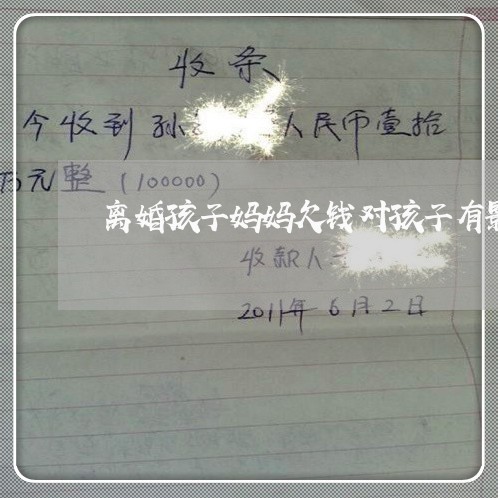 收条
今收到孙 人民币壹拾
万元整（100000）
离婚孩子妈妈欠钱对孩子有
收款人
2011年6月2日